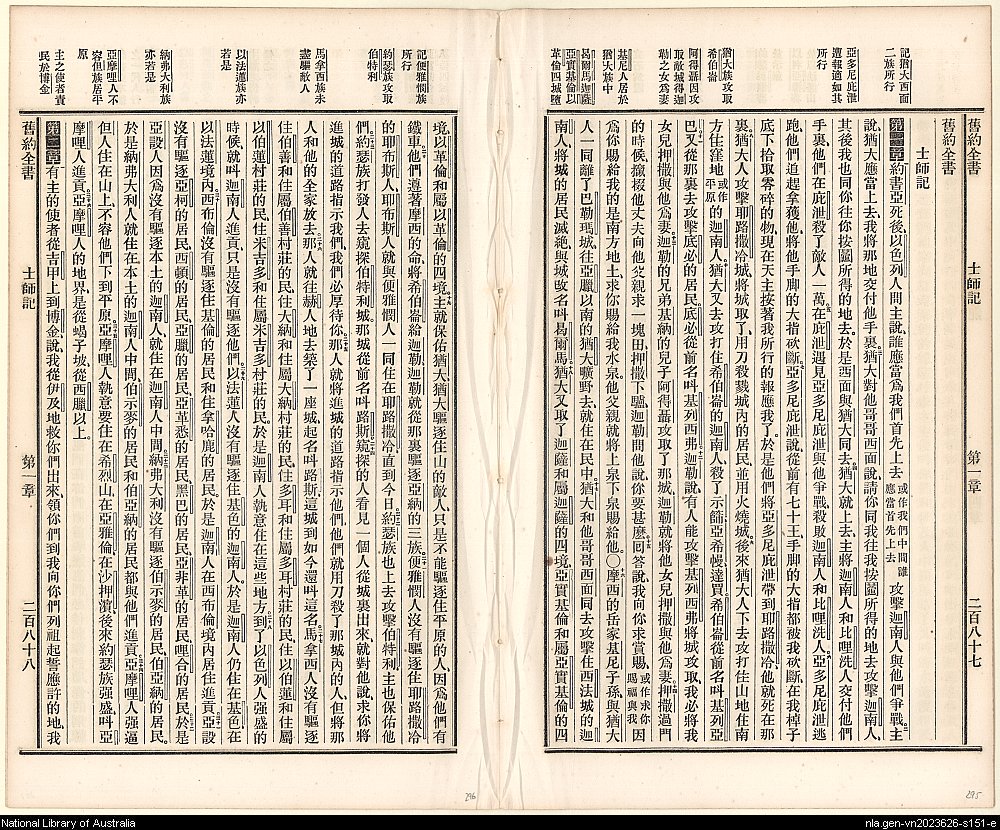 舊約全書
士師記
第一章
二百八十七
記猶大西面
二族所行
亞多尼庇泄
遭報適如其
所行
猶大族攻取
希伯崙
阿得聶因攻
取敵城得迦
勒之女爲妻
基尼人居於
猶大族中
易爾馬迦薩
亞實基倫以
革倫四城墮
舊約全書
士師記
第一章約書亞死後以色列人問主說誰應當爲我們首先上去或作我們中間誰應當首先上去攻擊迦南人與他們爭戰主
說猶大應當上去我將那地交付他手裏猶大對他哥哥西面說請你同我往我按鬮所得的地去攻擊迦南人
其後我也同你往你按鬮所得的地去於是西面與猶大同去猶大就上去主將迦南人和比哩洗人交付他們
手裏他們在庇泄殺了敵人一萬在庇泄遇見亞多尼庇泄與他爭戰殺敗迦南人和比哩洗人亞多尼庇泄逃
跑他們追趕拿獲他將他手脚的大指砍斷亞多尼庇泄說從前有七十王手脚的大指都被我砍斷在我棹子
底下拾取零碎的物現在天主按著我所行的報應我了於是他們將亞多尼庇泄帶到耶路撒冷他就死在那
裏猶大人攻擊耶路撒冷城將城取了用刀殺戮城內的居民並用火燒城後來猶大人下去攻打住山地住南
方住窪地或作平原的迦南人猶大又去攻打住希伯崙的迦南人殺了示篩亞希幔達買希伯崙從前名叫基列亞
巴又從那裏去攻擊底必的居民底必從前名叫基列西弗迦勒說有人能攻擊基列西弗將城攻取我必將我
女兒押撒與他爲妻迦勒的兄弟基納的兒子阿得聶攻取了那城迦勒就將他女兒押撒與他爲妻押撒過門
的時候攛掇他丈夫向他父親求一塊田押撒下驢迦勒問他說你要甚麽回答說我向你求賞賜或作求你賜福與我因
爲你賜給我的是南方地土求你賜給我水泉他父親就將上泉下泉賜給他〇摩西的岳家基尼子孫與猶大
人一同離了巴勒瑪城往亞臘以南的猶大曠野去就住在民中猶大和他哥哥西面同去攻擊住西法城的迦
南人將城的居民滅絶與城改名叫曷爾馬猶大又取了迦薩和屬迦薩的四境亞實基倫和屬亞實基倫的四
記便雅憫族
所行
約瑟族攻取
伯特利
馬拿西族未
盡驅敵人
以法蓮族亦
若是
納弗大利族
亦若是
亞摩哩人不
容但族居平
原
主之使者責
民於博金
境以革倫和屬以革倫的四境主就保佑猶大猶大驅逐住山的敵人只是不能驅逐住平原的人因爲他們有
鐵車他們遵著摩西的命將希伯崙給迦勒迦勒就從那裏驅逐亞納的三族便雅憫人沒有驅逐住耶路撒冷
的耶布斯人耶布斯人就與便雅憫人一同住在耶路撒冷直到今日約瑟族也上去攻擊伯特利主也保佑他
們約瑟族打發人去窺探伯特利城那城從前名叫路斯窺探的人看見一個人從城裏出來就對他說求你將
進城的道路指示我們我們必厚待你那人就將進城的道路指示他們他們就用刀殺了那城內的人但將那
人和他的全家放去那人就往赫人地去築了一座城起名叫路斯這城到如今還叫這名馬拿西人沒有驅逐
住伯善和住屬伯善村莊的民住大納和住屬大納村莊的民住多耳和住屬多耳村莊的民住以伯蓮和住屬
以伯蓮村莊的民住米吉多和住屬米吉多村莊的民於是迦南人執意住在這些地方到了以色列人强盛的
時候就叫迦南人進貢只是沒有驅逐他們以法蓮人沒有驅逐住基色的迦南人於是迦南人仍住在基色在
以法蓮境內西布倫沒有驅逐住基倫的居民和住拿哈鹿的居民於是迦南人在西布倫境內居住進貢亞設
沒有驅逐亞柯的居民西頓的居民亞臘的居民亞革悉的居民黑巴的居民亞非革的居民哩合的居民於是
亞設人因爲沒有驅逐本土的迦南人就住在迦南人中間納弗大利沒有驅逐伯示麥的居民伯亞納的居民
於是納弗大利人就住在本土的迦南人中間伯示麥的居民和伯亞納的居民都與他們進貢亞摩哩人强逼
但人住在山上不容他們下到平原亞摩哩人執意要住在希烈山在亞雅倫在沙押濱後來約瑟族强盛叫亞
摩哩人進貢亞摩哩人的地界是從蝎子坡從西臘以上
第二章有主的使者從吉甲上到博金說我從伊及地救你們出來領你們到我向你們列祖起誓應許的地我
舊約全書
士師記
第一章
二百八十八
296
295
National Library of Australia
nla.gen-vn2023626-s151-e